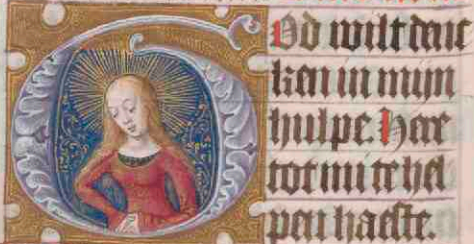 God wilt denc
ken in mijn
hulpe Here
tot mi te hel
pen haeste.